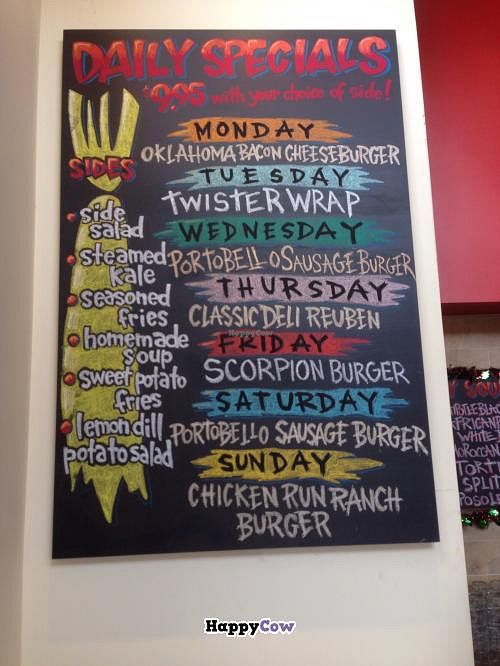 DAILY SPECIALS
$9.95 with your choice of side!
SIDES
side
salad
steamed
kale
seasoned
fries
homemade
soup
sweet potato
fries
lemon dill
potato salad
MONDAY
OKLAHOMA BACON CHEESEBURGER
TUESDAY
TWISTER WRAP
WEDNESDAY
PORTOBELLO SAUSAGE BURGER
THURSDAY
CLASSIC DELI REUBEN
HappyCow
FRIDAY
SCORPION BURGER
SATURDAY
PORTOBELLO SAUSAGE BURGER
SUNDAY
CHICKEN RUN RANCH
BURGER
WHITE
TORT
SPLIT
HappyCow